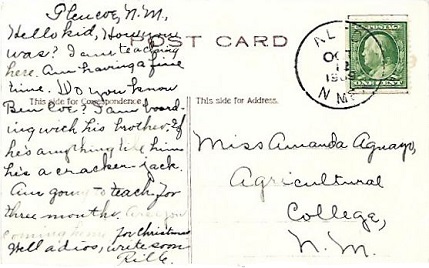 Glencoe, N.M.
Hello kid, How you
was? I am teaching
here. Am having a fine
time. Do you know
Ben Coe? I am board-
ing with his brother. If
he's anything like him
he's a cracker-jack.
Am going to teach for
three months. Are you
coming home for Christmas
Well adios, write soon
POST CARD
This side for Correspondence.
This side for Address.
OCT
12
N MEX
Miss Amanda Aguayo,
Agricultural
College,
N.M.